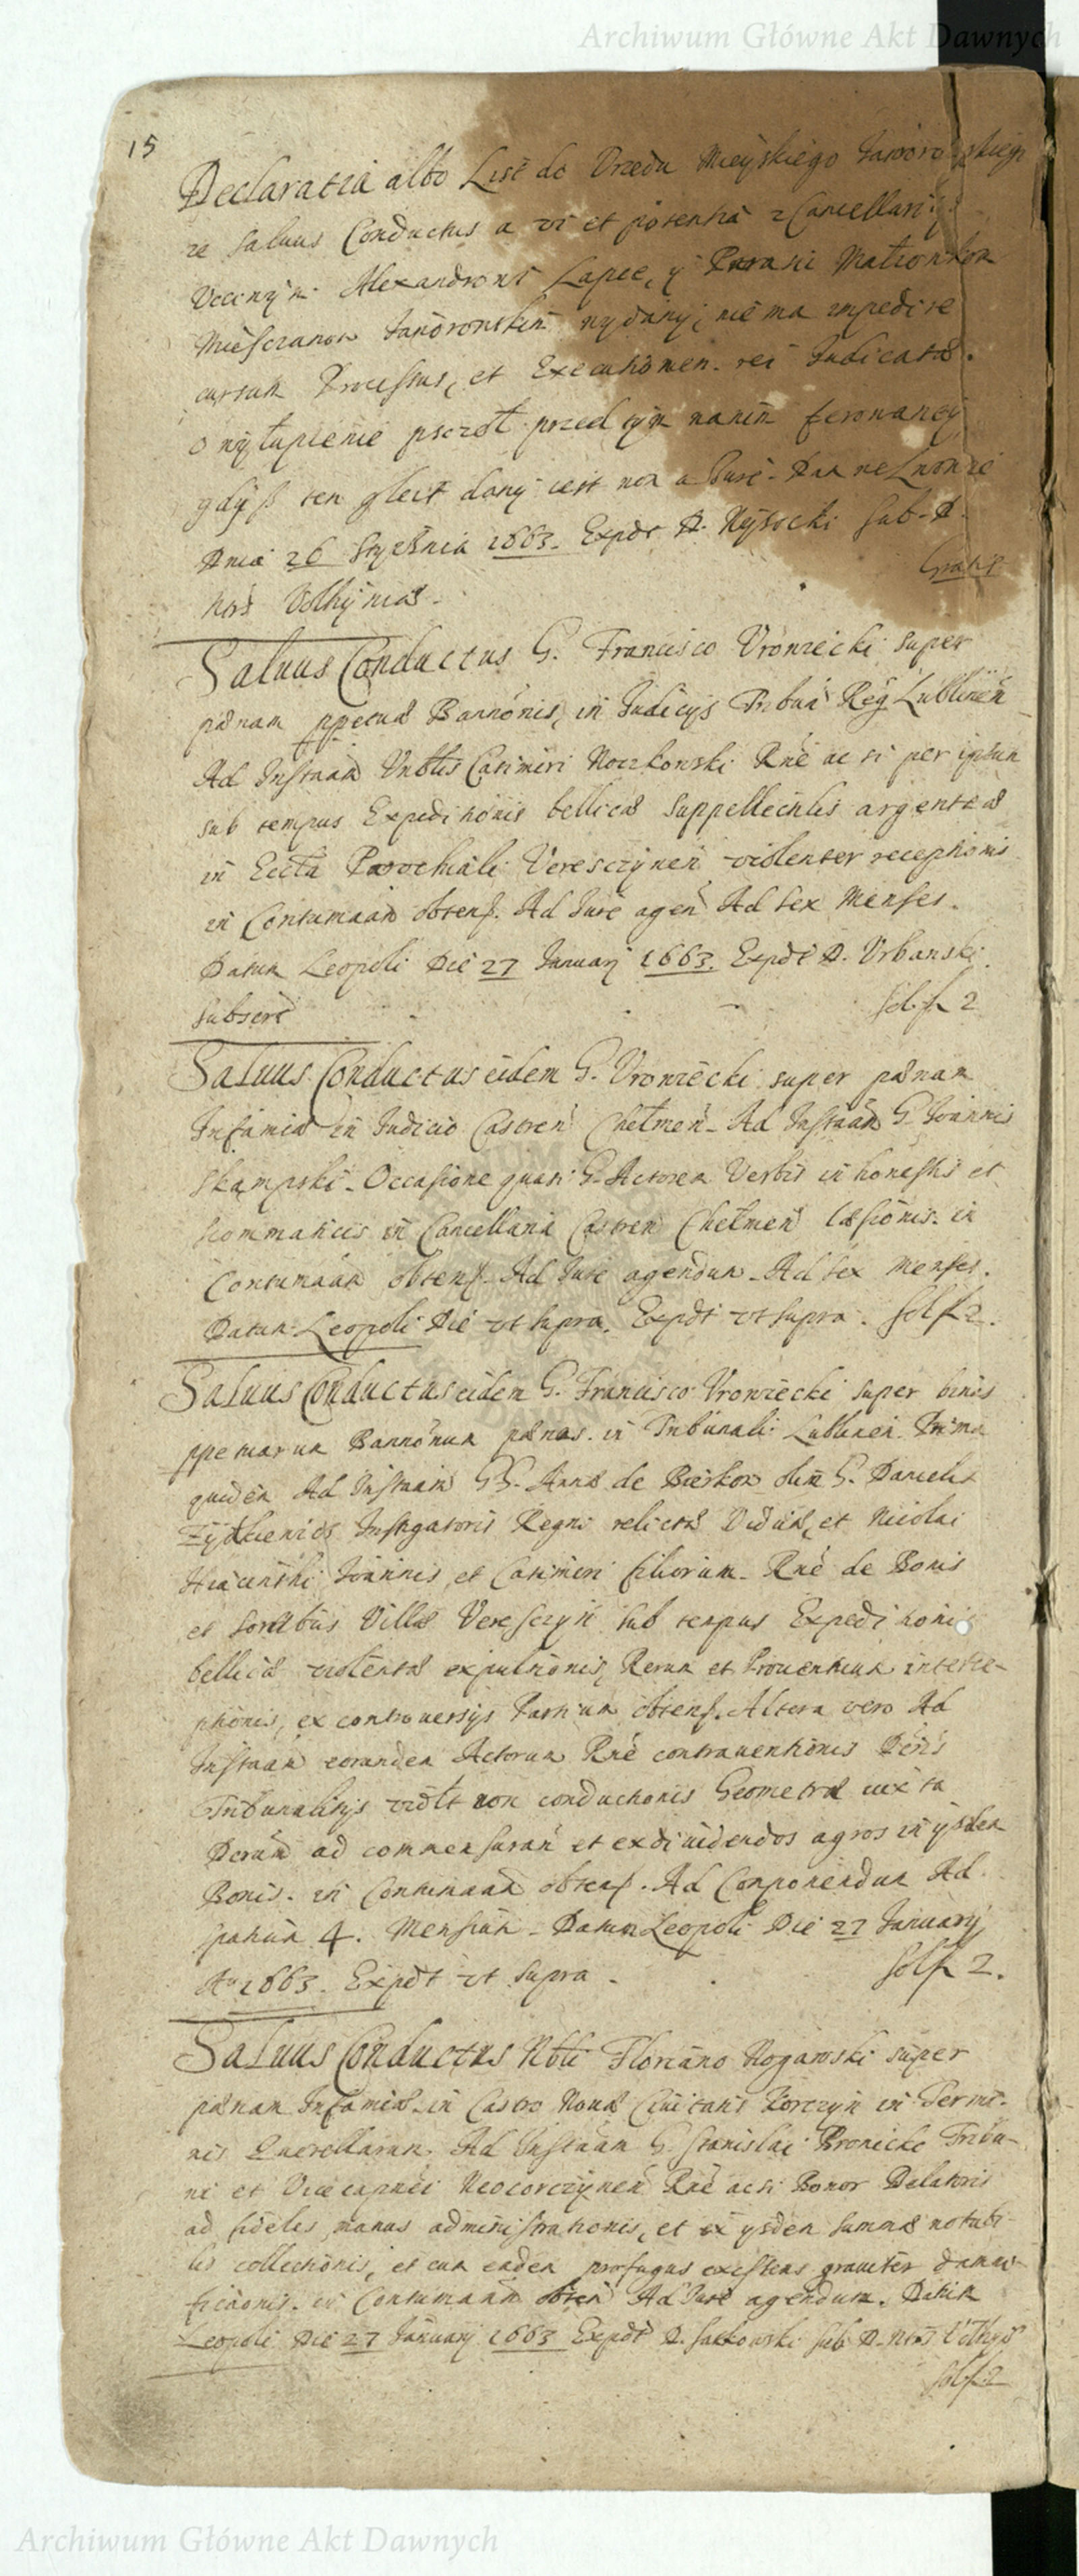 Archiwum Główne Akt Dawnych
15
Declaratia albo List do Vrzędu Mieyskiego Jaworowskiego
ze Saluus Conductus a vi et potentia z Cancellarij
Alexandrowi Łapce, y Małzonkom
Miesczanom Jaworowskim wydany, nie ma impedire
cursum Processus, et Executionem rei Judicatæ.
o wyłupienie pszczół przed tym
gdysz ten gleit dany iest non a Jure. Dan we Lwowie
Dnia 26 Stycznia 1663. Expdt D. Wysocki Sub D.
Gratis
Nris Volhyniæ.
Saluus Conductus G. Francisco Vrowiecki super
pænam ppetuæ Bannonis, in Judicijs Tribun Reg Lublinen
Ad Instaam Casimiri Noczkowski Rne ac si per ipsum
sub tempus Expeditionis bellicæ Suppellectilis argenteæ
in Eccla Parochiali Veresczynen violenter receptionis
in Contumaam obtens. Ad Jure agen Ad sex Menses.
Datum Leopoli Die 27 January 1663. Expdt D. Vrbanski
Subscrt
sol f 2
Saluus Conductus eidem G. Vrowiecki super pænam
Infamiæ in Judicio Castren Chełmen. Ad Instaam G. Joannis
Skampski. Occasione quasi G. Actorem Verbis inhonestis et
scommaticis in Cancellaria Castren Chełmen læsionis. in
Contumaam obtens. Ad Jure agendum. Ad sex Menses.
Datum Leopoli Die vt supra. Expdt vt supra. sol f 2.
Saluus Conductus eidem G. Francisco Vrowiecki super binas
ppetuarum Bannonum pænas. in Tribunali Lublinen. Prima
quidem Ad Instaam GG. Annæ de olim G. Danielis
Instigatoris Regni relictæ Viduæ, et Nicolai
Hiacinthi Joannis et Casimiri filiorum. Rne de Bonis
et Sortibus Villæ Veresczyn sub tempus Expeditionis
bellicæ violentæ expulsionis, Rerum et Prouentuum interce-
ptionis, ex controuersijs Partium obtens. Altera vero Ad
Instaam eorundem Actorum Rne contrauentionis Dctis
Tribunalitijs vidlt non conductionis Geometræ iuxta
Dctum ad commensuran et exdiuidendos agros in ijsdem
Bonis. in Contumaam obtens. Ad Componendum Ad
spatium 4. Mensium. Datum Leopoli Die 27 January
Ao 1663. Expdt vt supra.
sol f 2.
Saluus Conductus Nbli Floriano Rogawski super
pænam Infamiæ in Castro Nouæ Ciuitatis Korczyn in Termi-
nis Querellarum. Ad Instaam G. Stanislai Kronicki Tribu-
ni et Vicecapnei Neocorczynen Rne acsi Bonor Delatoris
ad fideles manus administrationis, et ex ijsdem summæ notabi-
lis collectionis, et cum eadem profugus existens grauiter damni-
ficaonis. in Contumaam obten Ad Jure agendum. Datum
Leopoli Die 27 January 1663 Expdt D. Sub D. Ntris Volhyæ
sol f 2
Archiwum Główne Akt Dawnych